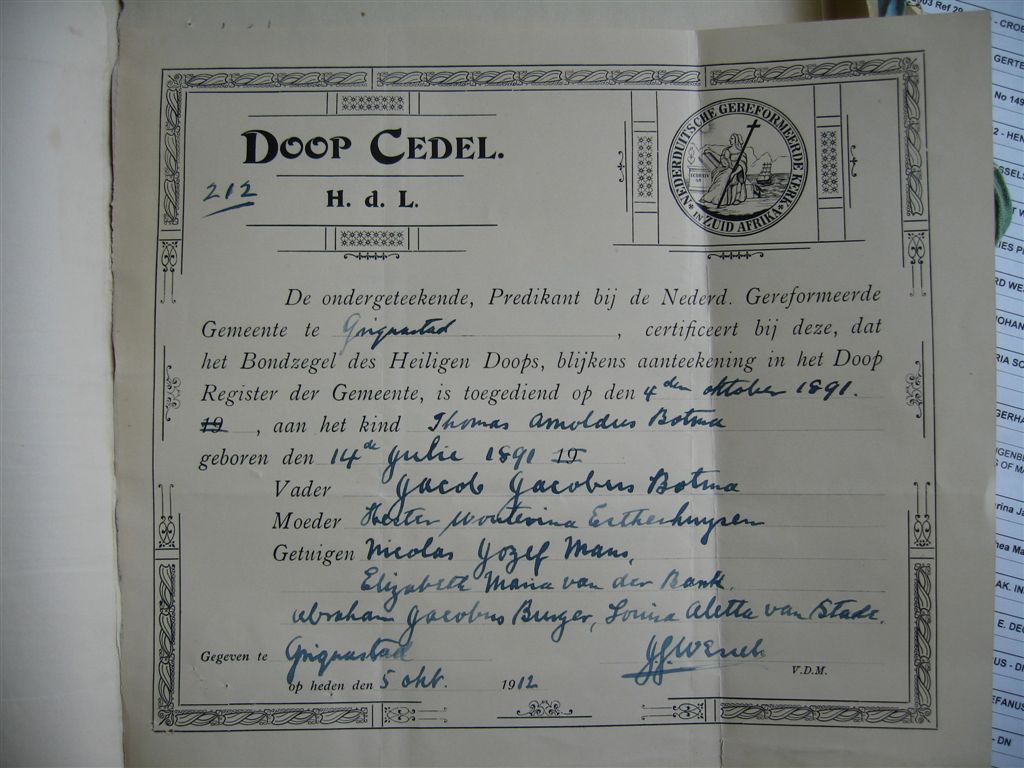 DOOP CEDEL.
212
H. d. L.
NEDERDUITSCHE GEREFORMEERDE KERK
IN ZUID AFRIKA
De ondergeteekende, Predikant bij de Nederd. Gereformeerde
Gemeente te Griquastad, certificeert bij deze, dat
het Bondzegel des Heiligen Doops, blijkens aanteekening in het Doop
Register der Gemeente, is toegediend op den 4den oktober 1891.
19 , aan het kind Thomas Arnoldus Botma
geboren den 14de Julie 1891 19
Vader Jacob Jacobus Botma
Moeder Hester Wouterina Esterhuysen
Getuigen Nicolas Jozef Maus,
Elizabeth Maria van der Bank,
Abraham Jacobus Burger, Louisa Aletta van Stade.
Gegeven te Griquastad
V.D.M.
op heden den 5 okt. 1912
03 Ref 29
- CROE
GERTE
No 149
2 - HEN
SSELS
T W
IES P
RD WE
JOHAN
RIA SC
GERHA
NGENBE
S OF MA
rina Ja
nea Ma
AK. IN
E. DE
US - D
EFANUS
- DN